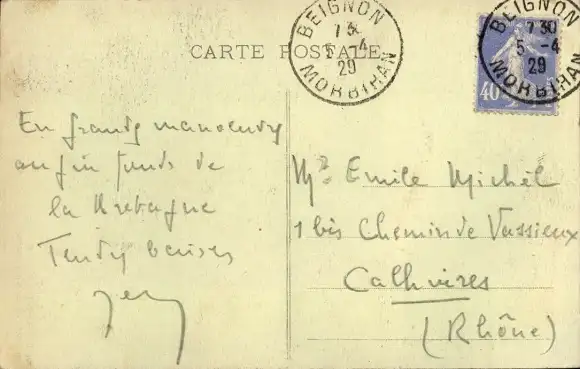 CARTE POSTALE
BEIGNON
7 30
5 -4
29
MORBIHAN
BEIGNON
7 30
5 -4
29
MORBIHAN
40
En grandes manoeuvres
au fin fonds de
la Bretagne
Tendres baisers
Mr Emile Michel
1 bis Chemin de Vassieux
Calhuires
(Rhône)